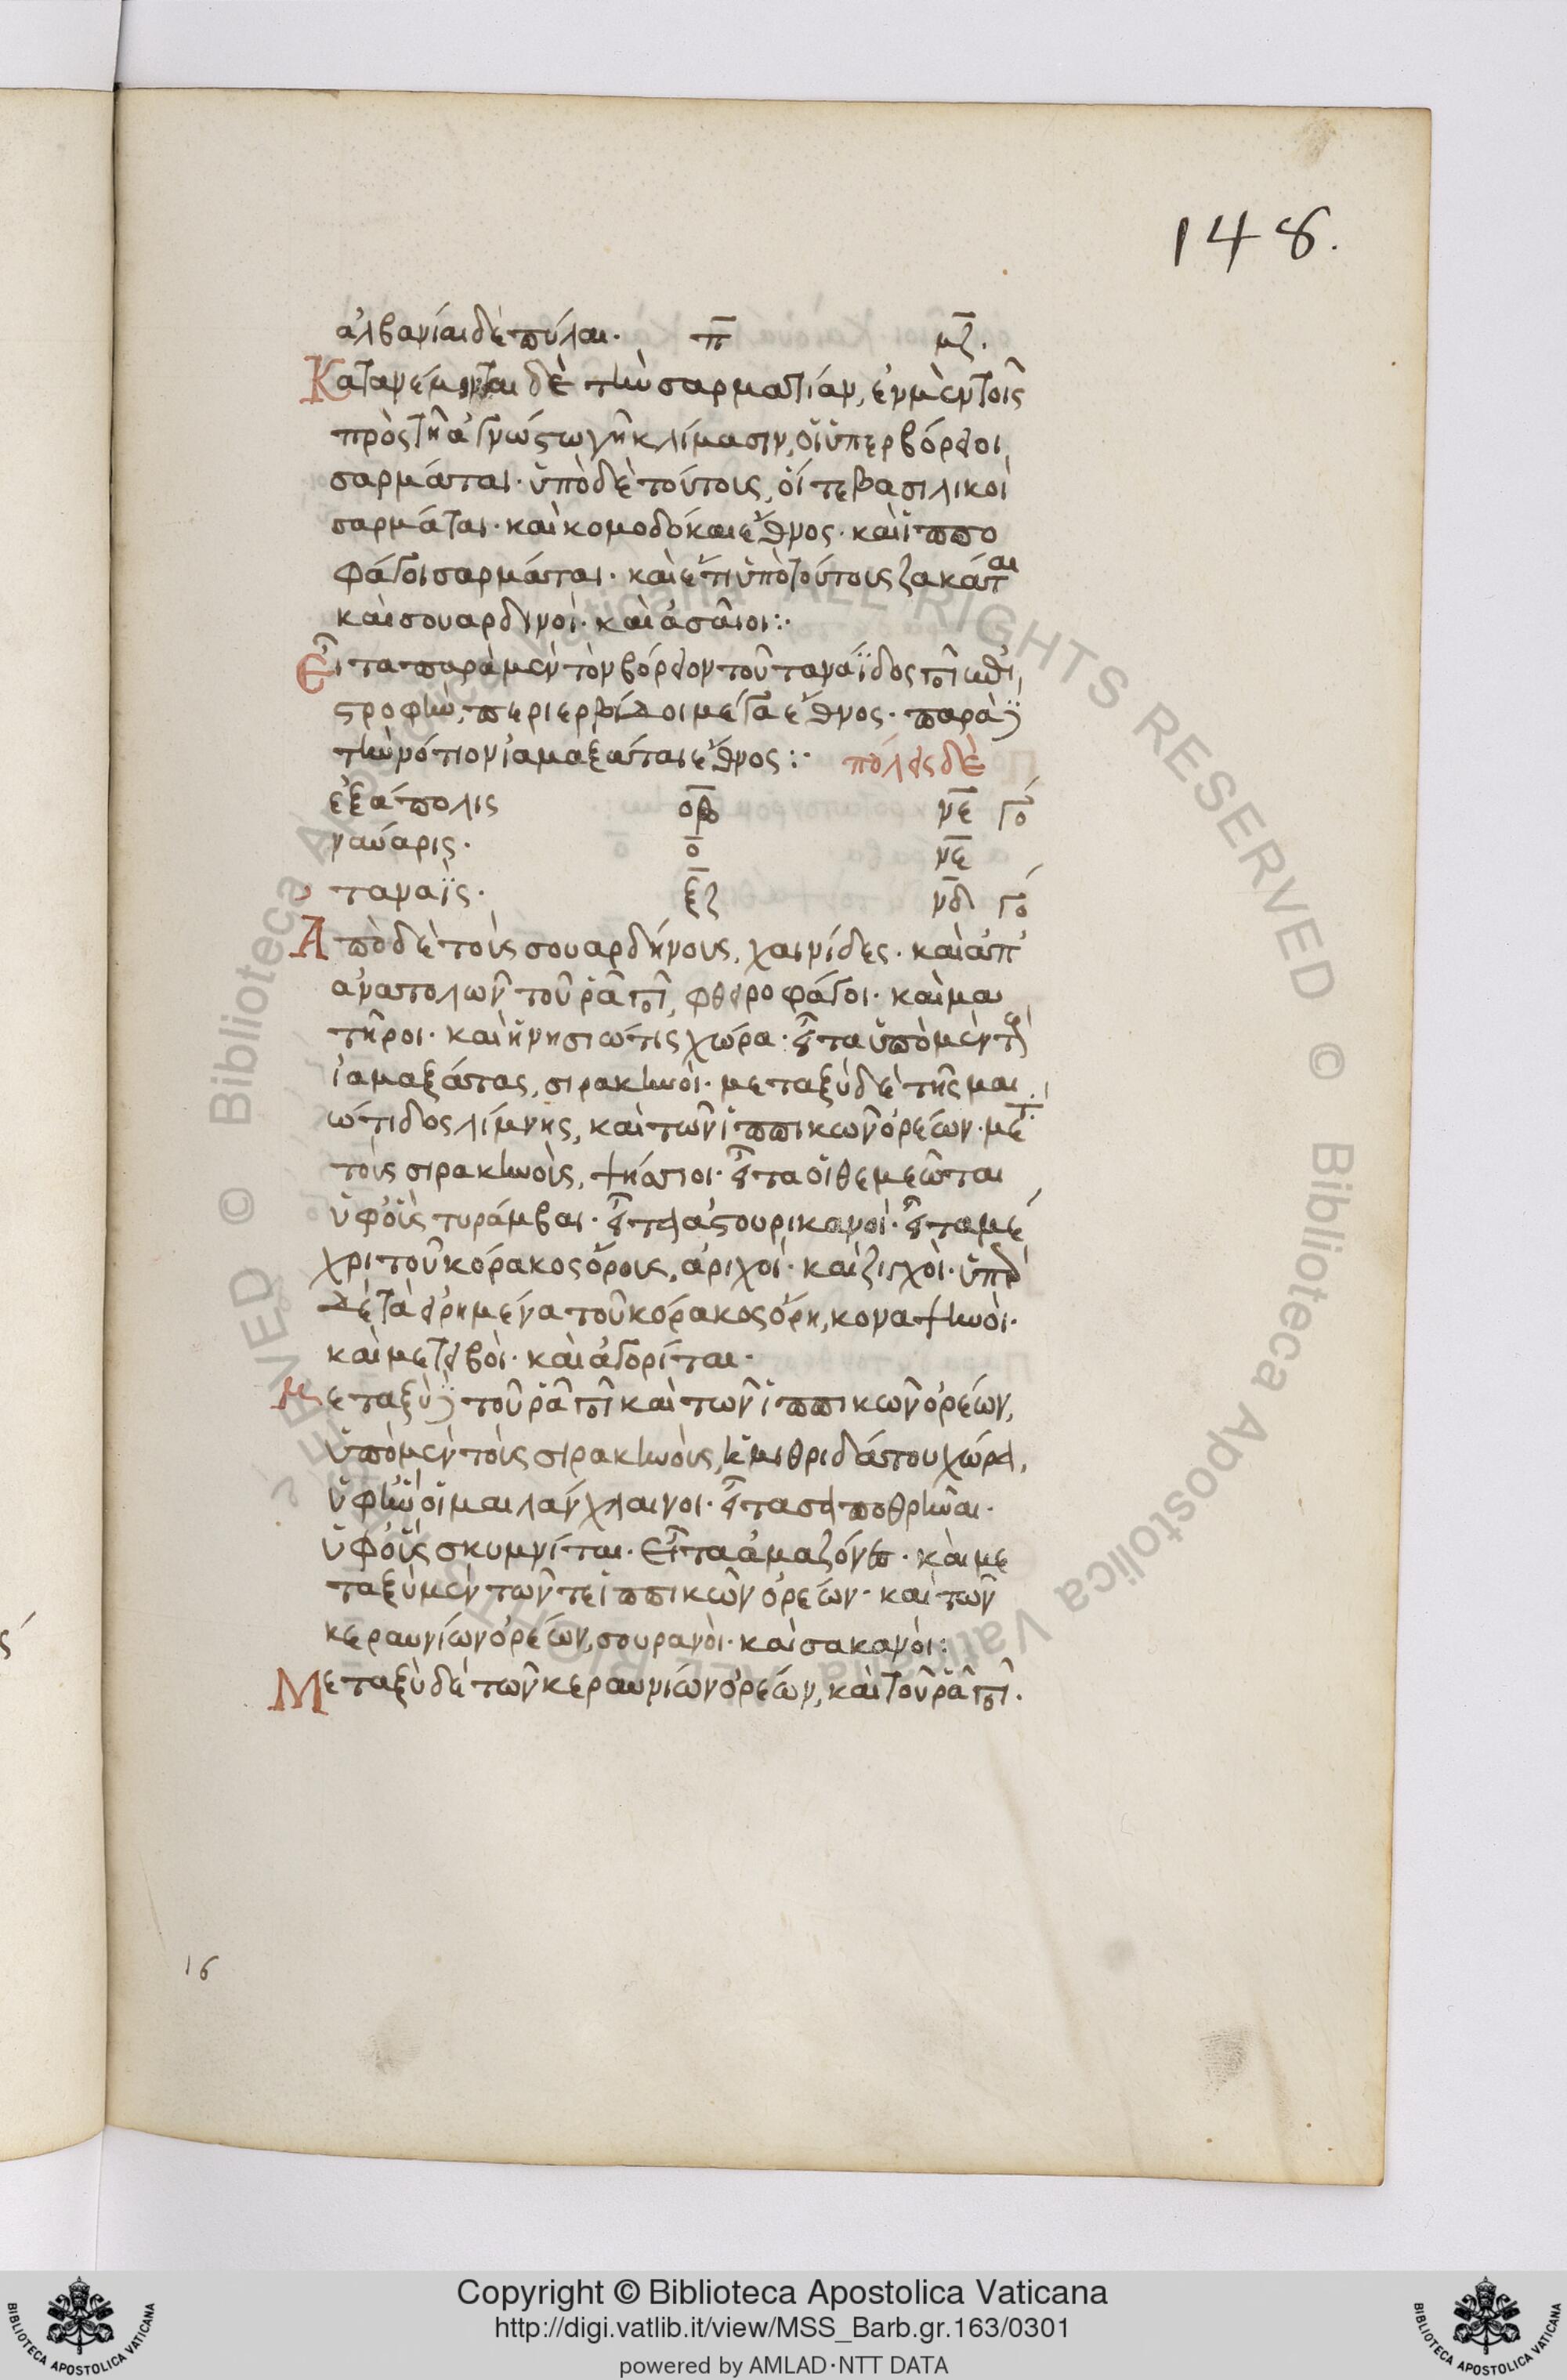 148.
ἀλβανίαι δὲ πύλαι· π̅ μ̅ζ̅.
Κατανέμονται δὲ τὴν σαρματίαν, ἐν μὲν τοῖς
πρὸς τῇ ἀγνώστω γῇ κλίμασιν, οἱ ὑπερβόρεοι
σαρμάται· ὑπὸ δὲ τούτους, οἵ τε βασιλικοὶ
σαρμάται· καὶ κομοδόκαι ἔθνος· καὶ ἱππο
φάγοι σαρμάται· καὶ ἔτι ὑπὸ τούτους ζακάται
καὶ σουαρδινοί· καὶ ἀσαῖοι :·
Εἶτα παρὰ μὲν τὸν βόρειον τοῦ ταναΐδος ποτ ἐπι
στροφὴν, περιερβίδοι μέγα ἔθνος· παρὰ δὲ
τὴν νότιον ἰαμαξάται ἔθνος :· πόλεις δὲ
ἐξάπολις ο̅β̅ ν̅ε̅ γο
ναύαρις· ο̅ ν̅ε̅
ταναΐς· ξ̅ζ̅ ν̅δ̅ γο
Ἀπὸ δὲ τοὺς σουαρδήνους, χαινίδες· καὶ ἀπ'
ἀνατολῶν τοῦ ῥᾶ ποτ, φθειροφάγοι· καὶ μα
τῆροι· καὶ ἡ νησιώτις χώρα· εἶτα ὑπὸ μὲν τοὺς
ἰαμαξάτας, σιρακηνοί· μεταξὺ δὲ τῆς μαι
ώτιδος λίμνης, καὶ τῶν ἱππικῶν ὀρέων· με
τοὺς σιρακηνοὺς, ψήσιοι· εἶτα οἱ θεμεῶται
ὑφ' οὓς τυράμβαι· εἶτα ἀστουρικανοί· εἶτα μέ
χρι τοῦ κόρακος ὄρους, ἀριχοί· καὶ ζιγχοί· ὑπὸ
δὲ τὰ εἰρημένα τοῦ κόρακος ὄρη, κοναψηνοί·
καὶ μετειβοί· καὶ ἀγορίται·
Μεταξὺ δὲ τοῦ ῥᾶ ποτ καὶ τῶν ἱππικῶν ὀρέων,
ὑπὸ μὲν τοὺς σιρακηνοὺς, ἡ μιθριδάτου χώρα,
ὑφ' ἣν οἱ μαιλάνχλαινοι· εἶτα σαποθρῆναι·
ὑφ' οὓς σκυμνίται· εἶτα ἀμαζόνες· καὶ με
ταξὺ μὲν τῶν τε ἱππικῶν ὀρέων· καὶ τῶν
κεραυνίων ὀρέων, σουρανοί· καὶ σακανοί :
Μεταξὺ δὲ τῶν κεραυνίων ὀρέων, καὶ τοῦ ῥᾶ ποτ.
16
© Biblioteca Apostolica Vaticana ALL RIGHTS RESERVED © Biblioteca Apostolica Vaticana ALL RIGHTS RESERVED
Copyright © Biblioteca Apostolica Vaticana
http://digi.vatlib.it/view/MSS_Barb.gr.163/0301
powered by AMLAD·NTT DATA
BIBLIOTECA APOSTOLICA VATICANA
BIBLIOTECA APOSTOLICA VATICANA